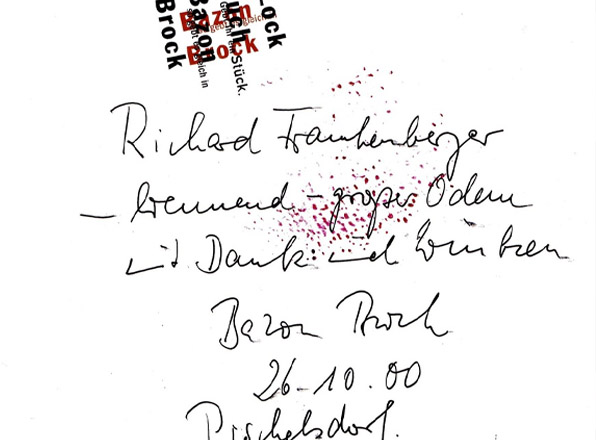 Bazon
Brock
Bazon
Brock
Stück.
Richard Frankenberger
– brennend – großer Odem
mit Dank: und
Bazon Brock
26.10.00
Pischelsdorf.